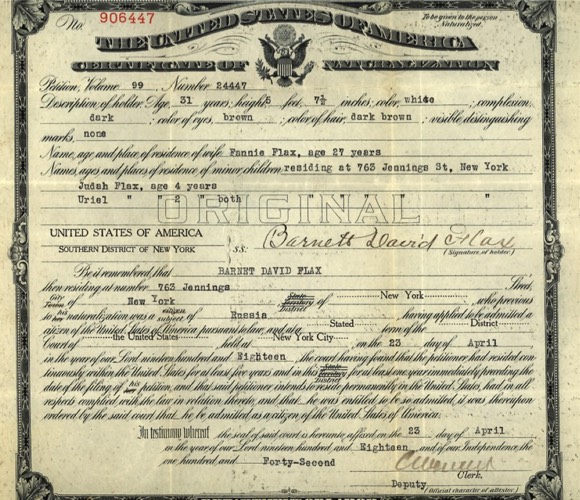 No. 906447
To be given to the person Naturalized.
THE UNITED STATES OF AMERICA
CERTIFICATE OF NATURALIZATION
Petition, Volume 99, Number 24447
Description of holder: Age, 31 years; height, 5 feet, 7½ inches; color, white; complexion,
dark; color of eyes, brown; color of hair, dark brown; visible distinguishing
marks, none
Name, age and place of residence of wife Fannie Flax, age 27 years
Names, ages and places of residence of minor children, residing at 763 Jennings St, New York
Judah Flax, age 4 years
Uriel " " 2 " both " " " " "
ORIGINAL
UNITED STATES OF AMERICA
SOUTHERN DISTRICT OF NEW YORK
S.S:
Barnett David Flax
(Signature of holder.)
Be it remembered, that BARNET DAVID FLAX
then residing at number 763 Jennings Street,
City Town of New York State Territory District of New York, who previous
to his her naturalization was a citizen subject of Russia, having applied to be admitted a
citizen of the United States of America pursuant to law, and at a Stated term of the District
Court of the United States held at New York City on the 23 day of April
in the year of our Lord nineteen hundred and Eighteen, the court having found that the petitioner had resided con-
tinuously within the United States for at least five years and in this State Territory District for at least one year immediately preceding the
date of the filing of his her petition, and that said petitioner intends to reside permanently in the United States, had in all
respects complied with the law in relation thereto, and that he was entitled to be so admitted, it was thereupon
ordered by the said court that he be admitted as a citizen of the United States of America.
In testimony whereof the seal of said court is hereunto affixed on the 23 day of April
in the year of our Lord nineteen hundred and Eighteen, and of our Independence the
one hundred and Forty-Second
Clerk.
Deputy
(Official character of attestor.)